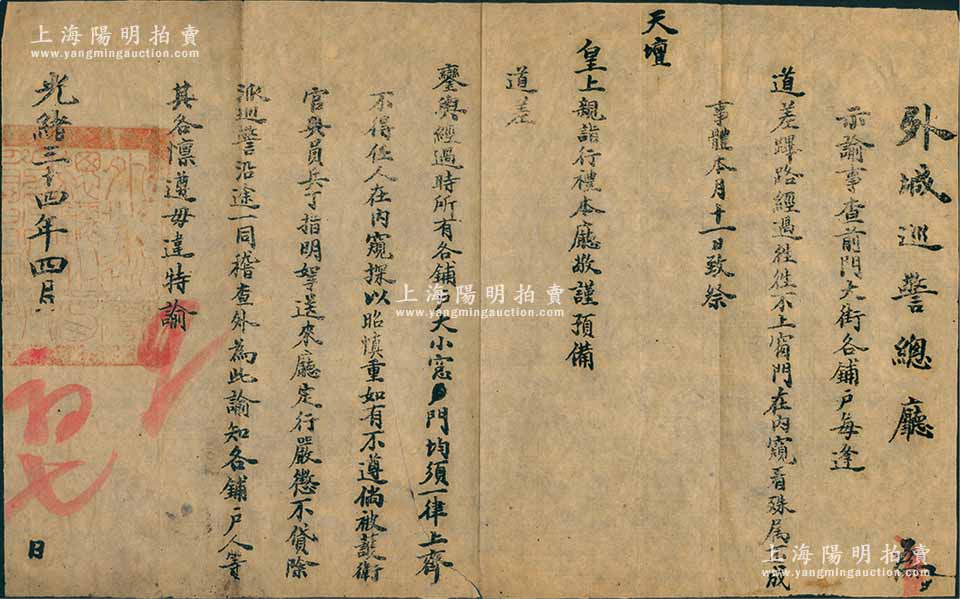 外城巡警總廳 為
示諭事查前門大街各鋪戶每逢
道差蹕路經過徃徃不上窗門在內窺看殊屬不成
事體本月十一日致祭
天壇
皇上親詣行禮本廳敬謹預備
道差
鑾輿經過時所有各鋪戶大小窓戶門均須一律上齊
不得任人在內窺探以昭慎重如有不遵倘被鼓衛
官與員兵丁指明拏送來廳定行嚴懲不貸除
派巡警沿途一同稽查外為此諭知各鋪戶人等
其各懔遵毋違特諭
光緒三十四年四月 日
上海陽明拍賣
www.yangmingauction.com
上海陽明拍賣
www.yangmingauction.com
上海陽明拍賣
www.yangmingauction.com
上海陽明拍賣
www.yangmingauction.com